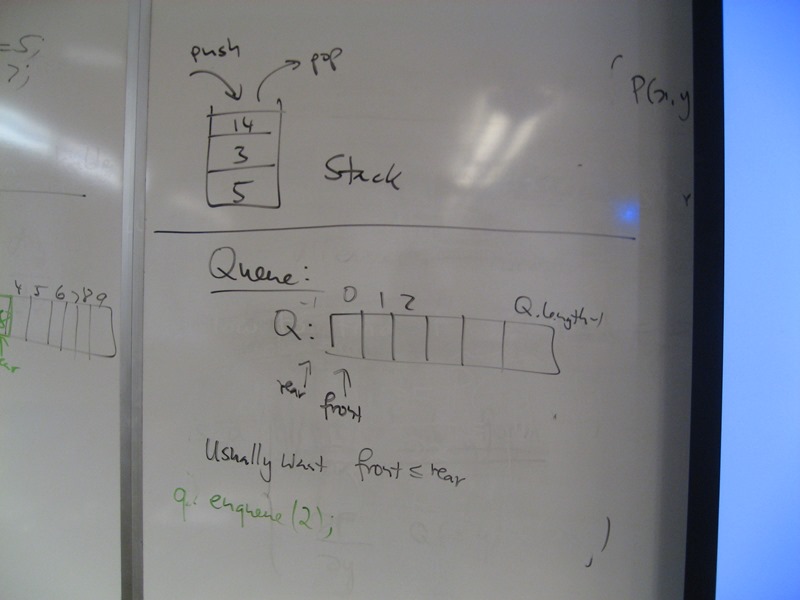 =5;
push
pop
P(x,y
14
3
5
Stack
Queue:
-1 0 1 2 Q.length-1
Q:
4 5 6 7 8 9
rear
front
Usually want front ≤ rear
q. enqueue(2);